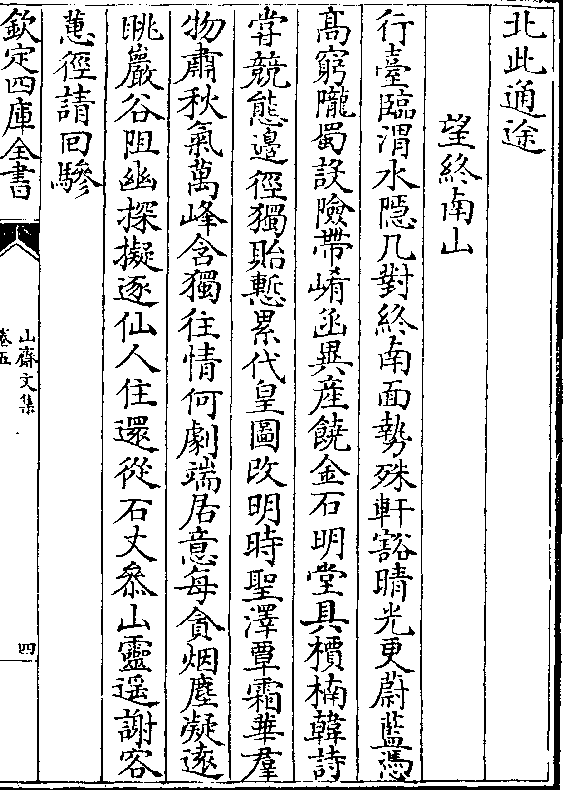 北此通途
望終南山
行臺臨渭水隱几對終南面勢殊軒豁晴光更蔚藍憑
髙窮隴蜀設險帶崤函異産饒金石明堂具檟楠韓詩
甞競態邉徑獨貽慙累代皇圖改明時聖澤覃霜華羣
物肅秋氣萬峰含獨往情何劇端居意每貪烟塵凝逺
眺巖谷阻幽探擬逐仙人住還從石丈叅山靈遥謝客
蕙徑請回驂
欽定四庫全書
山齋文集
卷五
四